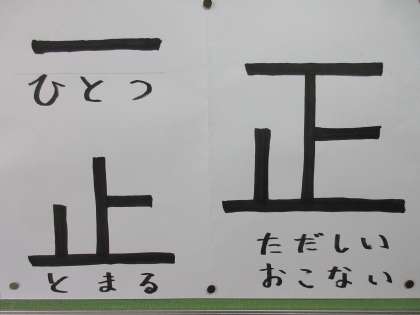 一
ひとつ
止
とまる
正
ただしい
おこない